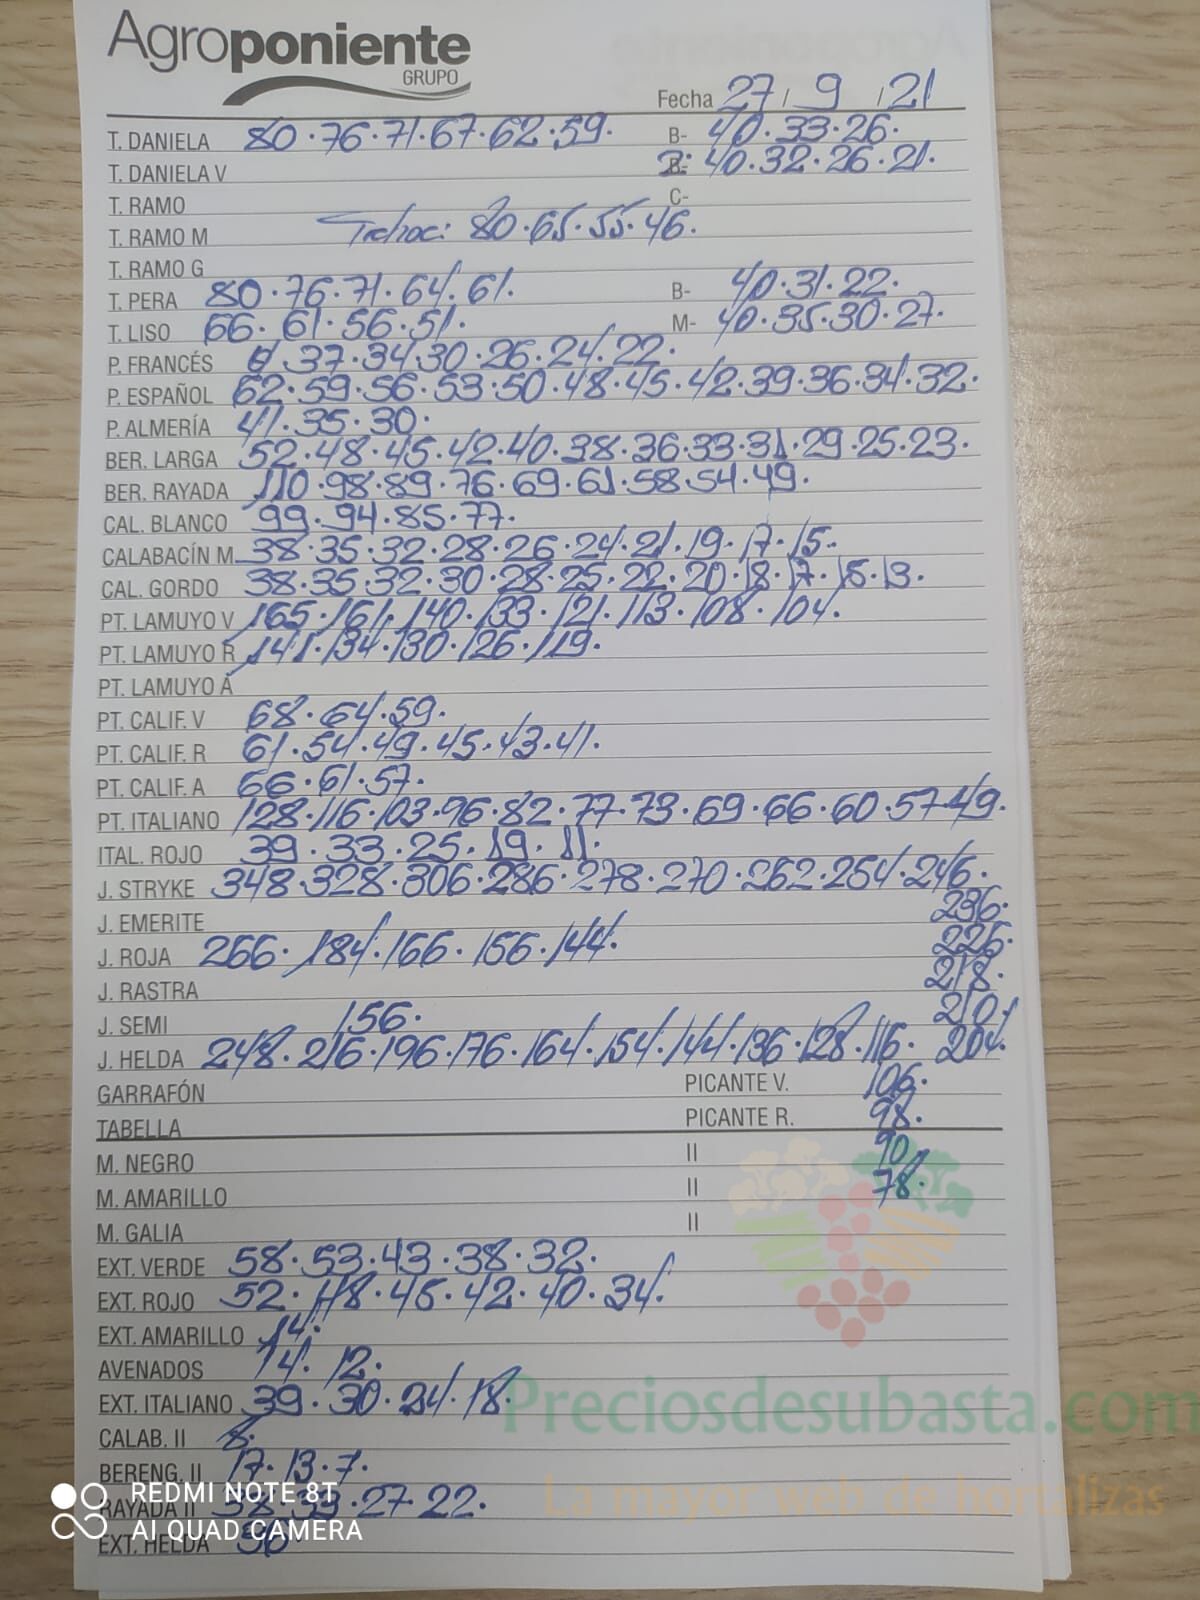 Agroponiente
GRUPO
Fecha 27 / 9 / 21
T. DANIELA 80.76.71.67.62.59. B- 40.33.26.
T. DANIELA V 40.32.26.21.
T. RAMO C-
T. RAMO M 80.65.55.46.
T. RAMO G
T. PERA 80.76.71.64.61. B- 40.31.22.
T. LISO 66.61.56.51. M- 40.35.30.27.
P. FRANCÉS 37.34.30.26.24.22.
P. ESPAÑOL 62.59.56.53.50.48.45.42.39.36.34.32.
P. ALMERÍA 41.35.30.
BER. LARGA 52.48.45.42.40.38.36.33.31.29.25.23.
BER. RAYADA 110.98.89.76.69.61.58.54.49.
CAL. BLANCO 99.94.85.77.
CALABACÍN M. 38.35.32.28.26.24.21.19.17.15.
CAL. GORDO 38.35.32.30.28.25.22.20.18.17.15.13.
PT. LAMUYO V 165.161.140.133.121.113.108.104.
PT. LAMUYO R 141.134.130.126.119.
PT. LAMUYO A
PT. CALIF. V 68.64.59.
PT. CALIF. R 61.54.49.45.43.41.
PT. CALIF. A 66.61.57.
PT. ITALIANO 128.116.103.96.82.77.73.69.66.60.57.49.
ITAL. ROJO 39.33.25.19.11.
J. STRYKE 348.328.306.286.278.270.262.254.246.
J. EMERITE 236.
J. ROJA 266.184.166.156.144. 226.
J. RASTRA 218.
J. SEMI 156. 210.
J. HELDA 248.216.196.176.164.154.144.136.128.116. 204.
GARRAFÓN PICANTE V. 106.
TABELLA PICANTE R. 98.
M. NEGRO II 90.
M. AMARILLO II 78.
M. GALIA II
EXT. VERDE 58.53.43.38.32.
EXT. ROJO 52.48.45.42.40.34.
EXT. AMARILLO 14.
AVENADOS 14.12.
EXT. ITALIANO 39.30.24.18.
Preciosdesubasta.com
CALAB. II 8.
BERENG. II 17.13.7.
REDMI NOTE 8T
RAYADA II 38.33.27.22.
La mayor web de hortalizas
AI QUAD CAMERA
EXT. HELDA